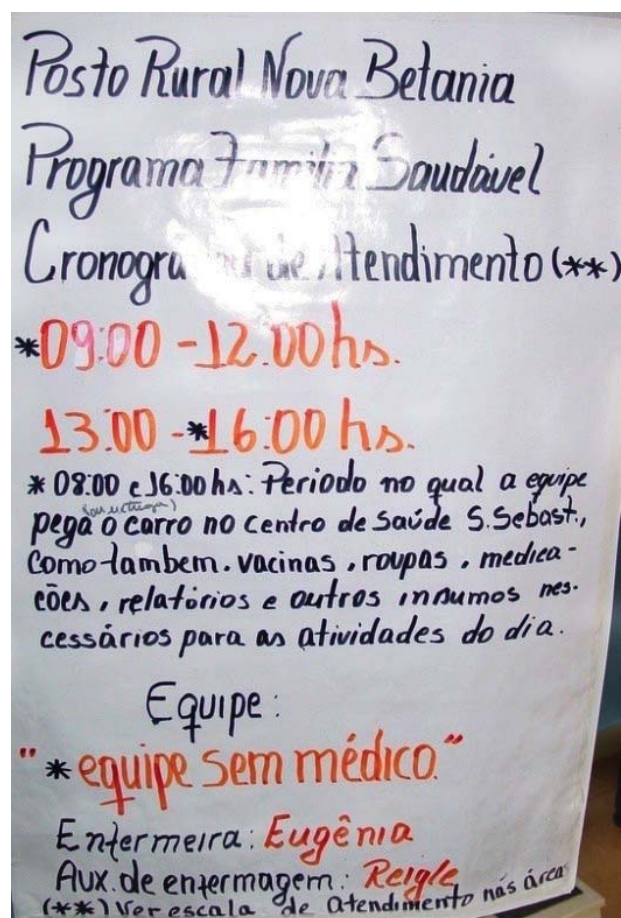 Posto Rural Nova Betania
Programa Família Saudável
Cronograma de Atendimento (**)
*09:00 - 12:00 hs.
13:00 - *16:00 hs.
* 08:00 e 16:00 hs: Periodo no qual a equipe
pega o carro no centro de saúde S. Sebast.,
como tambem. vacinas, roupas, medica-
cões, relatórios e outros insumos nes-
cessários para as atividades do dia.
Equipe:
"* equipe sem médico."
Enfermeira: Eugênia
Aux. de enfermagem: Reigle
(**) Ver escala de atendimento nas áreas